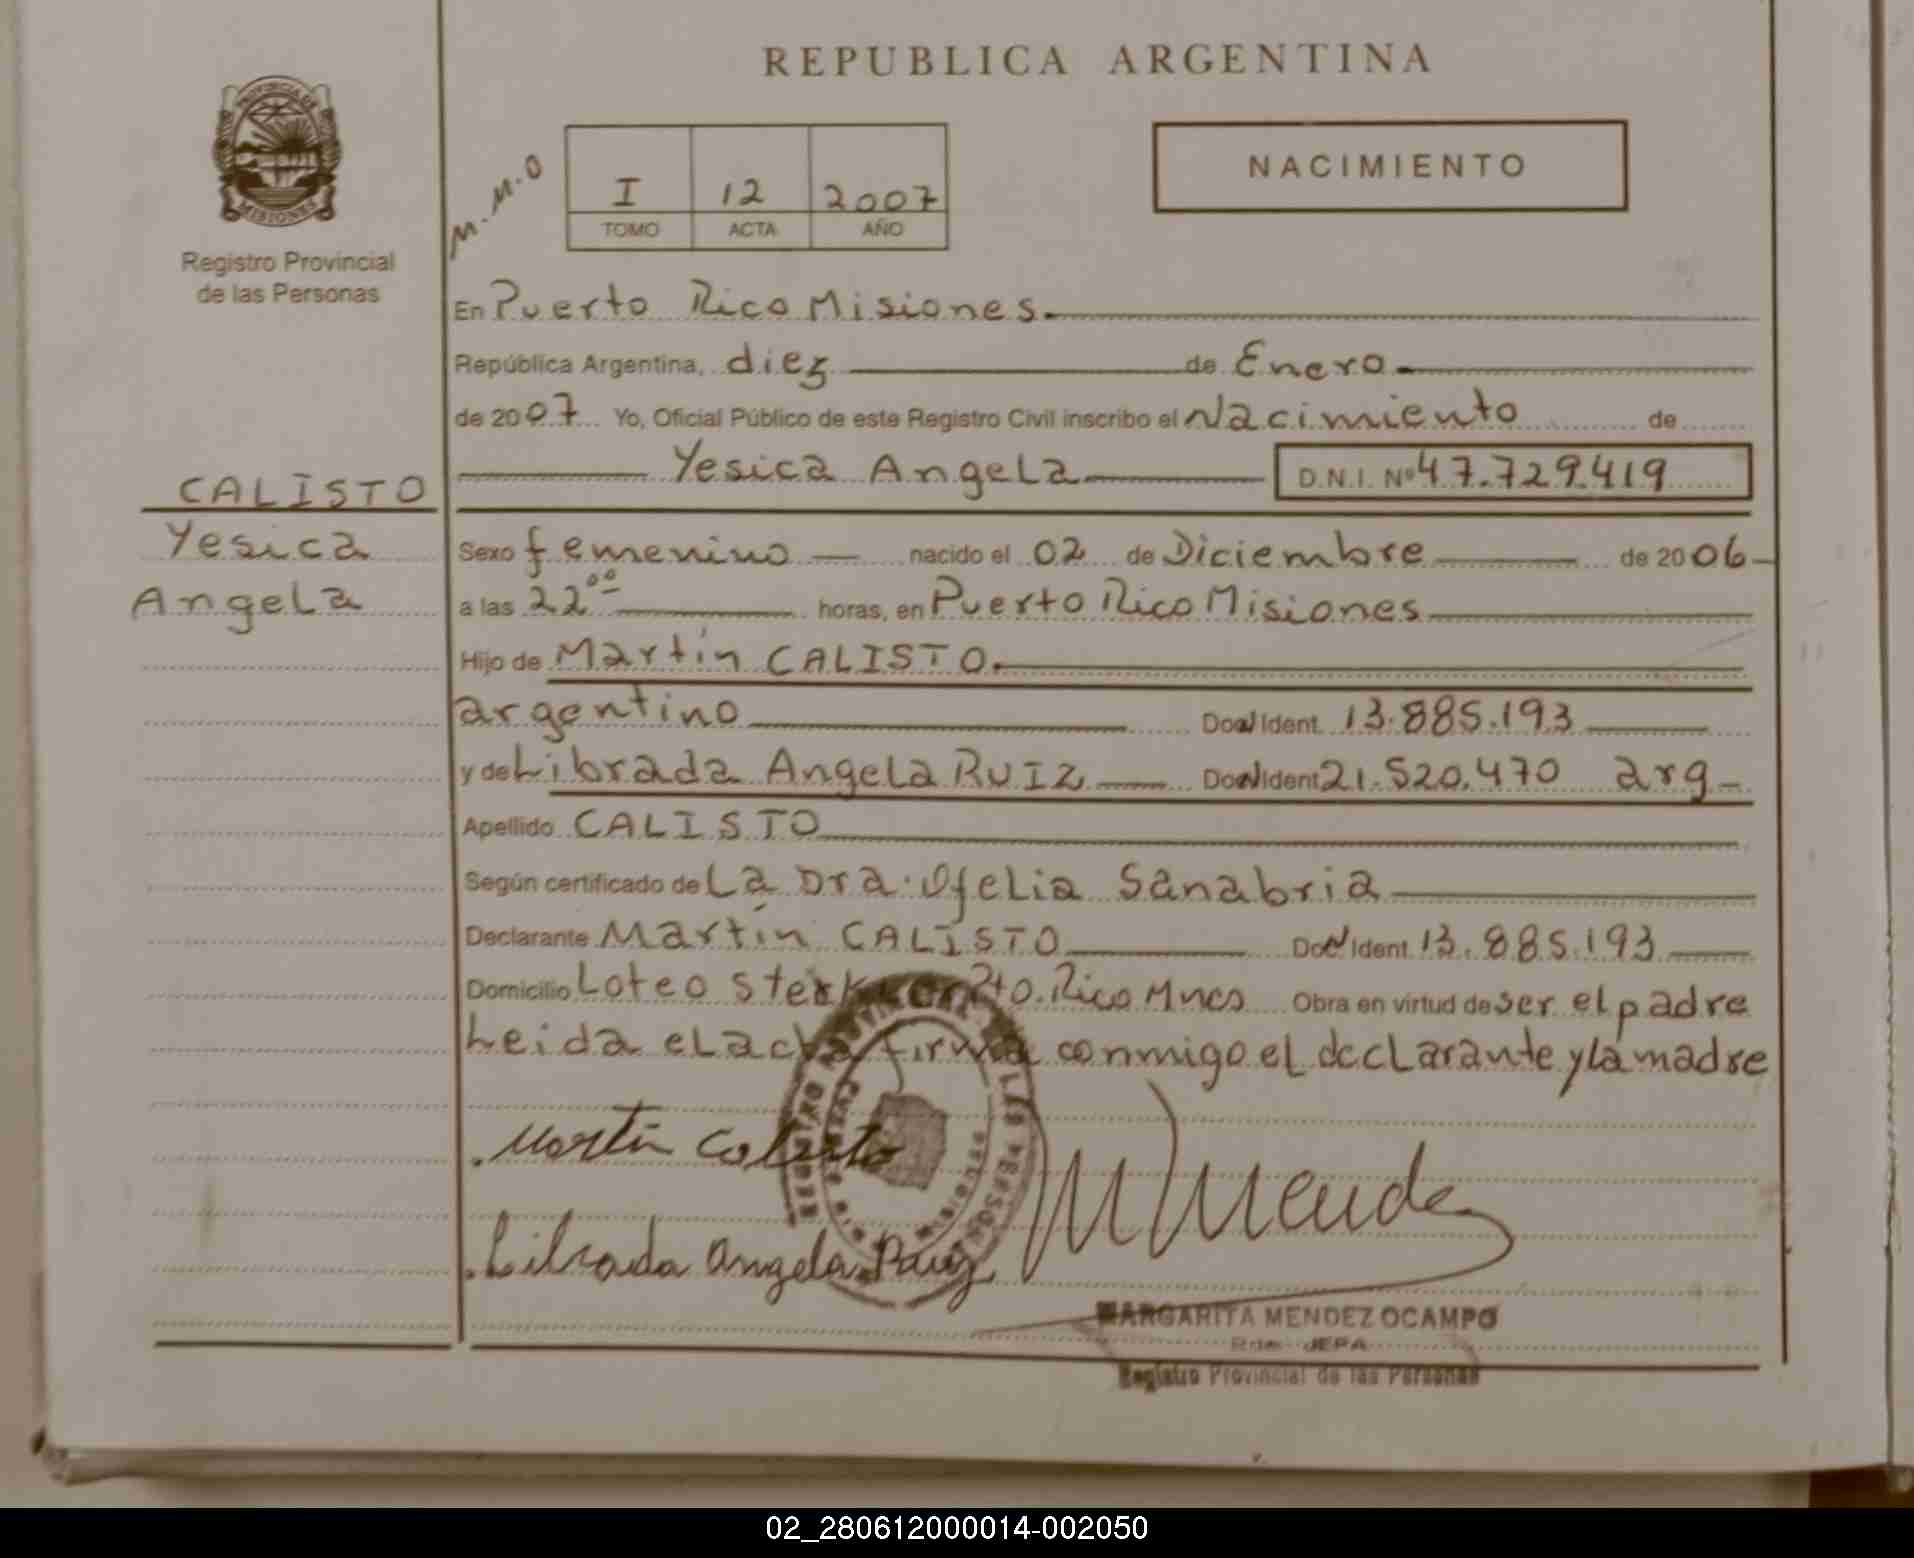 REPUBLICA ARGENTINA
PROVINCIA DE
MISIONES
Registro Provincial
de las Personas
M.M.O
I 12 2007
TOMO ACTA AÑO
NACIMIENTO
En Puerto Rico Misiones.
República Argentina, diez de Enero.
de 2007 Yo, Oficial Público de este Registro Civil inscribo el Nacimiento de
Yesica Angela D.N.I. Nº 47.729.419
CALISTO
Yesica
Angela
Sexo femenino nacido el 02 de Diciembre de 2006
a las 22 ºº horas, en Puerto Rico Misiones
Hijo de Martín CALISTO.
argentino Doc. Ident. 13.885.193
y de Librada Angela RUIZ Doc. Ident. 21.520.470 arg
Apellido CALISTO
Según certificado de La Dra. Ofelia Sanabria
Declarante Martín CALISTO Doc. Ident. 13.885.193
Domicilio Loteo Pto. Rico Mnes Obra en virtud de ser el padre
Leida el acta firma conmigo el declarante y la madre
Martín Calisto
Librada Angela Ruiz
M Mendez
REGISTRO PROVINCIAL DE LAS PERSONAS
Misiones
MARGARITA MENDEZ OCAMPO
JEFA
Registro Provincial de las Personas
02_280612000014-002050